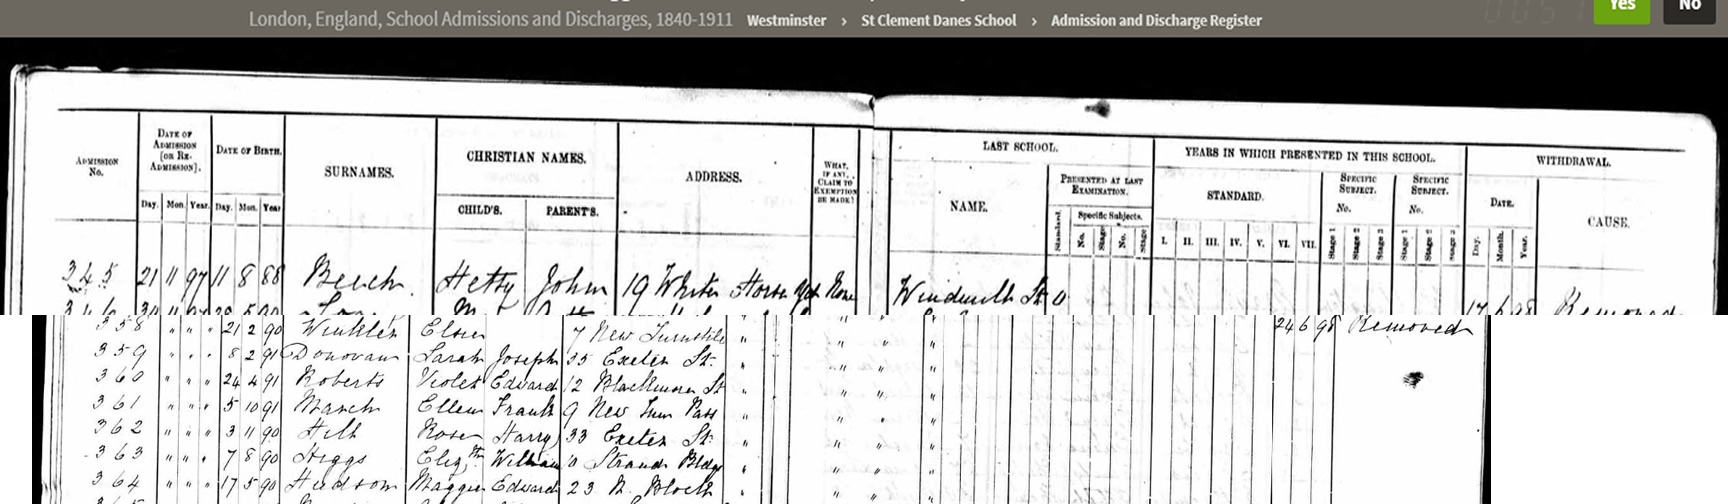 London, England, School Admissions and Discharges, 1840-1911 Westminster › St Clement Danes School › Admission and Discharge Register Yes No
ADMISSION No. DATE OF ADMISSION [OR RE-ADMISSION]. DATE OF BIRTH. SURNAMES. CHRISTIAN NAMES. ADDRESS. WHAT, IF ANY, CLAIM TO EXEMPTION BE MADE? LAST SCHOOL. YEARS IN WHICH PRESENTED IN THIS SCHOOL. WITHDRAWAL.
NAME. PRESENTED AT LAST EXAMINATION. STANDARD. SPECIFIC SUBJECT. No. SPECIFIC SUBJECT. No. DATE. CAUSE.
Day. Mon. Year. Day. Mon. Year CHILD'S. PARENT'S. Standard. Specific Subjects. No. Stage No. Stage I. II. III. IV. V. VI. VII. Stage 1 Stage 2 Stage 3 Stage 1 Stage 2 Stage 3 Day. Month. Year.
345 21 11 97 11 8 88 Beech. Hetty John 19 White Horse Yd None Windmill St 0
346 17 6 98 Removed
358 " " " 21 2 90 Winkler Elsie 7 New Turnstile " " " " 24 6 98 Removed
359 " " " 8 2 91 Donovan Sarah Joseph 35 Exeter St. " " " "
360 " " " 24 4 91 Roberts Violet Edward 12 Blackmoor St " " " "
361 " " " 5 10 91 March Ellen Frank 9 New Turn Pass " " " "
362 " " " 3 11 90 Hill Rose Harry 33 Exeter St. " " " "
363 " " " 7 8 90 Higgs Elizth William 10 Strand Bldgs " " " "
364 " " " 17 5 90 Hudson Maggie Edward 23 N. Block " " " "